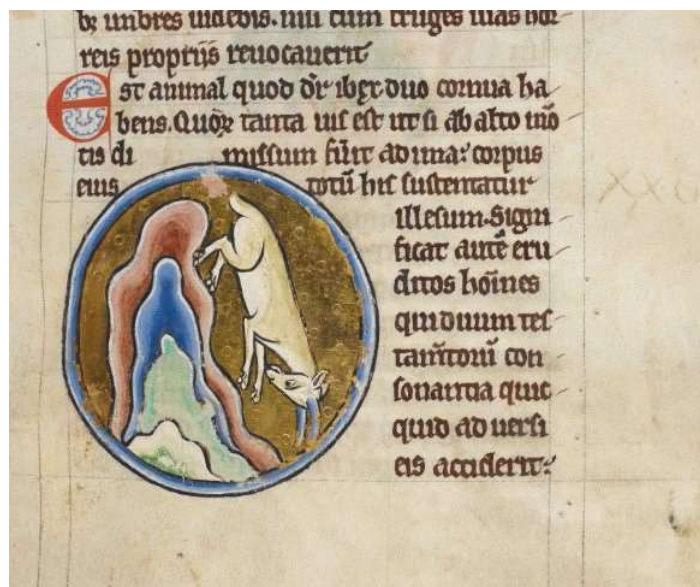 imbres uidebis. cum fruges hor
reis propriis reuocauerit
Est animal quod dr̄ ibex duo cornua ha
bens. Quoꝝ tanta uis est ut si ab alto mō
tis di missum fūit ad ima: corpus
eius totū his sustentatur
illesum. Signi
ficat autē eru
ditos hoīnes
qui duum tes
tam̄torū con
sonantia quic
quid ad uersi
eis acciderit: